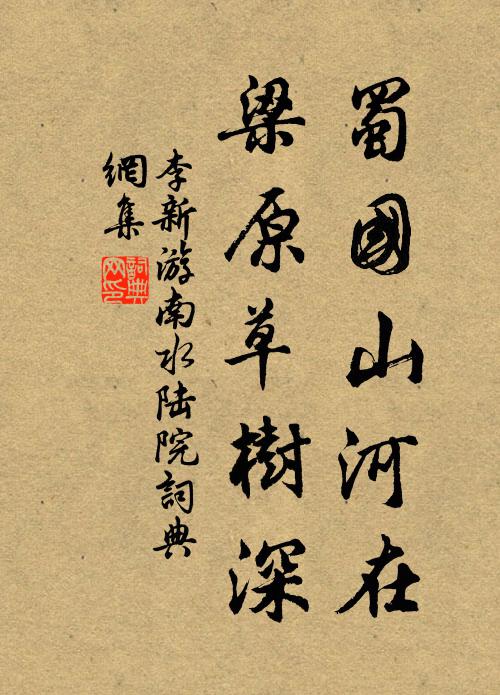 蜀國山河在
梁原草樹深
李新游南水陆院詞典
網集
詞典
网印